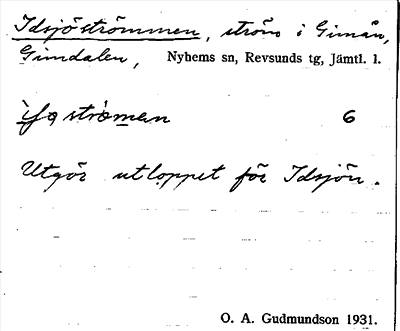 Idsjöströmmen, ström i Gimån,
Gimdalen, Nyhems sn, Revsunds tg, Jämtl. l.
strömen 6
Utgör utloppet för Idsjön.
O. A. Gudmundson 1931.